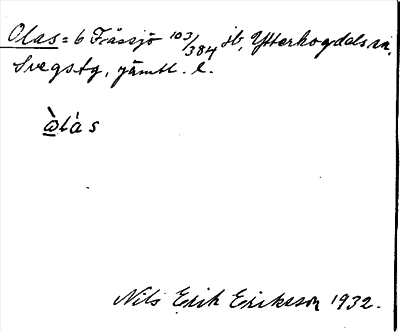 Olas = 6 Fråssjö 103/384 jb, Ytterhogdals sn,
Svegs tg, Jämtl. l.
òlás
Nils Erik Eriksson 1932.